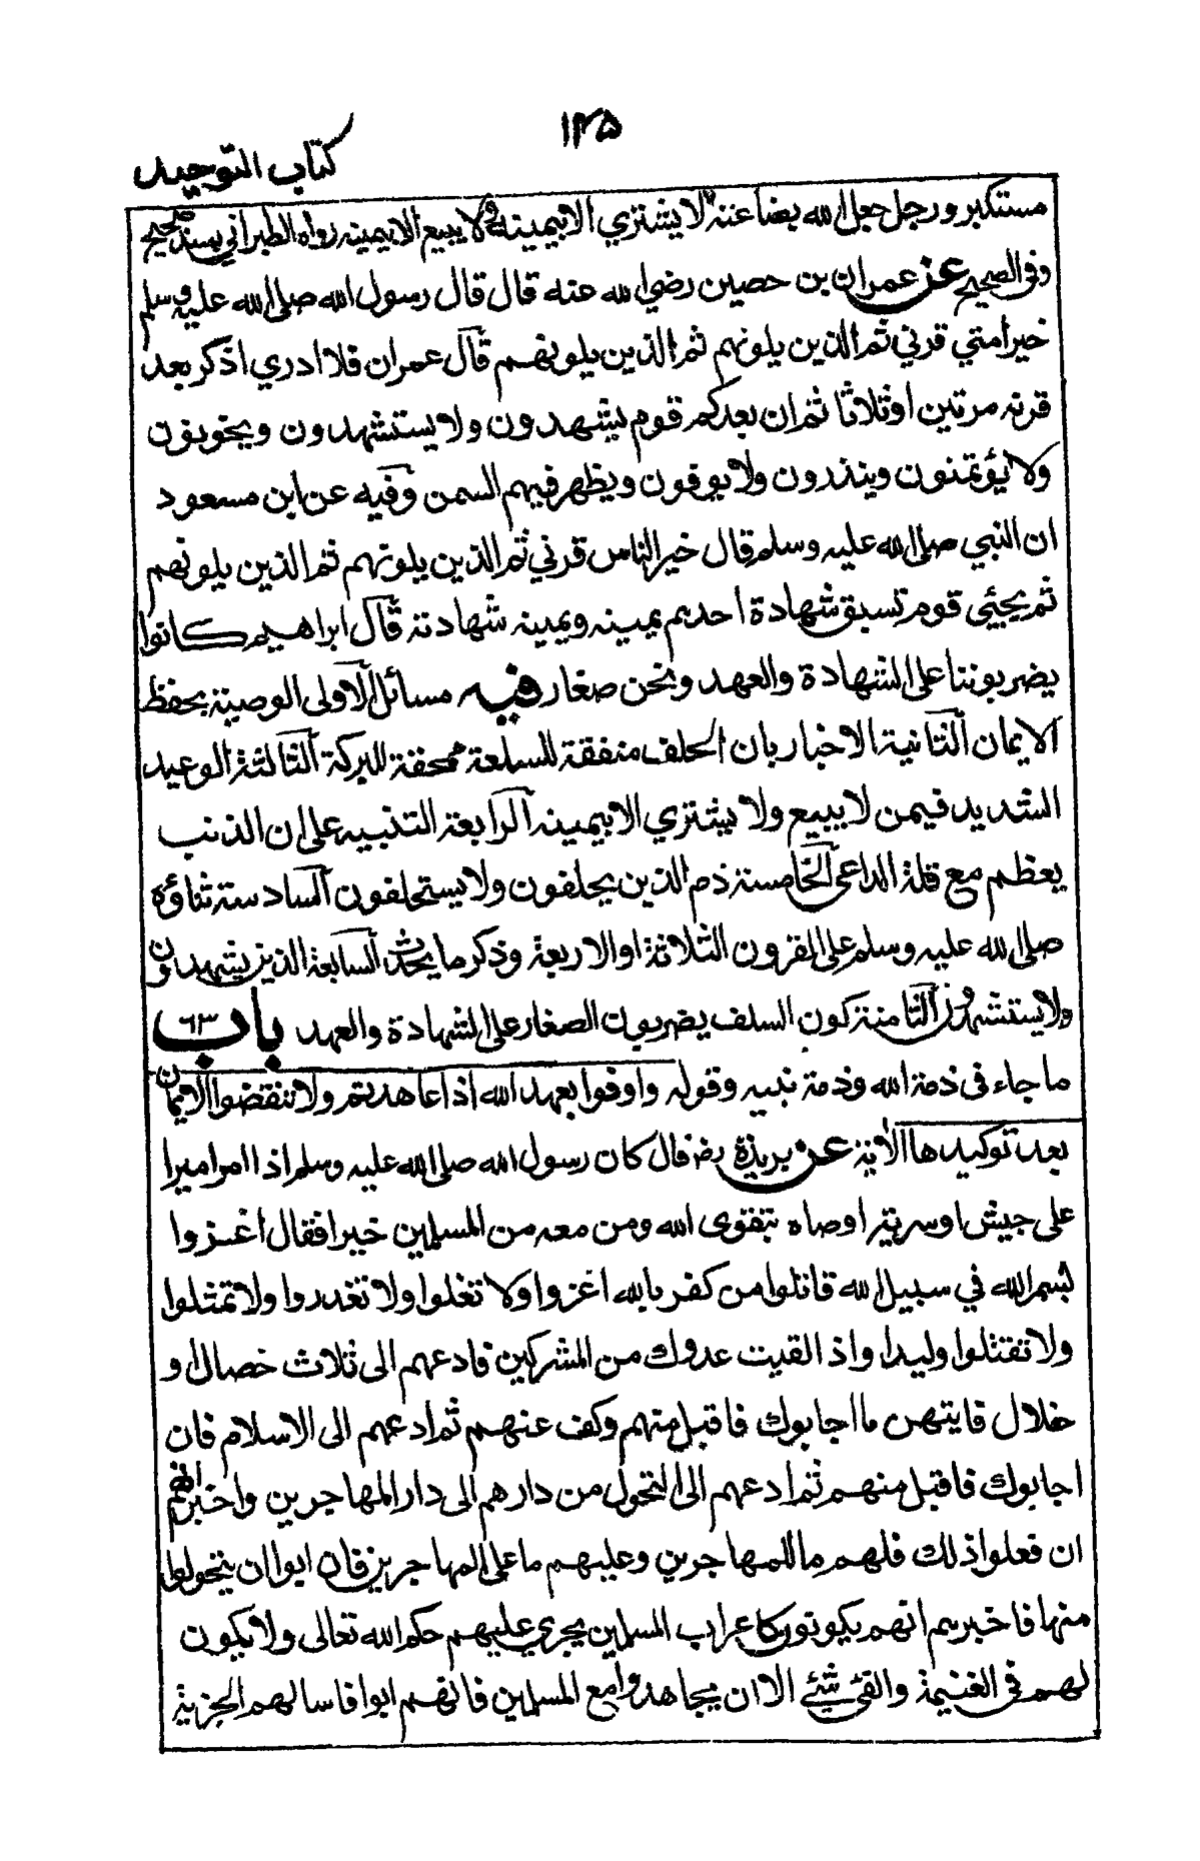 ١٢٥
كتاب التوحيد
مستكبر ورجل جعل الله بضاعته لا يشتري الا بيمينه ولا يبيع الا بيمينه رواه الطبراني بسند صحيح
وفي الصحيح عن عمران بن حصين رضي الله عنه قال قال رسول الله صلى الله عليه وسلم
خير امتي قرني ثم الذين يلونهم ثم الذين يلونهم قال عمران فلا ادري اذكر بعد
قرنه مرتين او ثلاثا ثم ان بعدكم قوم يشهدون ولا يستشهدون ويخونون
ولا يؤتمنون وينذرون ولا يوفون ويظهر فيهم السمن وفيه عن ابن مسعود
ان النبي صلى الله عليه وسلم قال خير الناس قرني ثم الذين يلونهم ثم الذين يلونهم
ثم يجيئ قوم تسبق شهادة احدهم يمينه ويمينه شهادته قال ابراهيم كانوا
يضربوننا على الشهادة والعهد ونحن صغار فيه مسائل الاولى الوصية بحفظ
الايمان الثانية الاخبار بان الحلف منفقة للسلعة ممحقة للبركة الثالثة الوعيد
الشديد فيمن لا يبيع ولا يشتري الا بيمينه الرابعة التنبيه على ان الذنب
يعظم مع قلة الداعي الخامسة ذم الذين يحلفون ولا يستحلفون السادسة ثناؤه
صلى الله عليه وسلم على القرون الثلاثة او الاربعة وذكر ما يحدث السابعة الذين يشهدون
ولا يستشهدون الثامنة كون السلف يضربون الصغار على الشهادة والعهد باب ٦٣
ما جاء في ذمة الله وذمة نبيه وقوله واوفوا بعهد الله اذا عاهدتم ولا تنقضوا الايمان
بعد توكيدها الاية عن بريدة رض قال كان رسول الله صلى الله عليه وسلم اذا امر اميرا
على جيش او سرية اوصاه بتقوى الله ومن معه من المسلمين خيرا فقال اغزوا
بسم الله في سبيل الله قاتلوا من كفر بالله اغزوا ولا تغلوا ولا تغدروا ولا تمثلوا
ولا تقتلوا وليدا واذ القيت عدوك من المشركين فادعهم الى ثلاث خصال او
خلال فايتهن ما اجابوك فاقبل منهم وكف عنهم ثم ادعهم الى الاسلام فان
اجابوك فاقبل منهم ثم ادعهم الى التحول من دارهم الى دار المهاجرين واخبرهم انهم
ان فعلوا ذلك فلهم ما للمهاجرين وعليهم ما على المهاجرين فان ابوا ان يتحولوا
منها فاخبرهم انهم يكونون كاعراب المسلمين يجري عليهم حكم الله تعالى ولا يكون
لهم في الغنيمة والفئ شئ الا ان يجاهدوا مع المسلمين فان هم ابوا فاسالهم الجزية